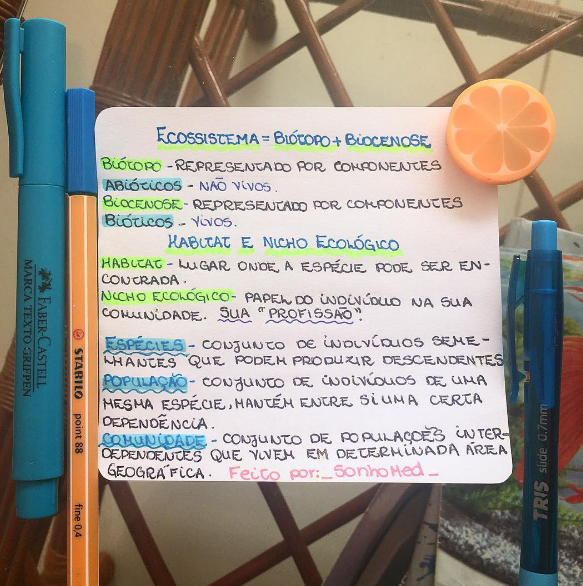 ECOSSISTEMA = BIÓTOPO + BIOCENOSE
BIÓTOPO - REPRESENTADO POR COMPONENTES
ABIÓTICOS - NÃO VIVOS.
BIOCENOSE - REPRESENTADO POR COMPONENTES
BIÓTICOS - VIVOS.
HABITAT E NICHO ECOLÓGICO
HABITAT - LUGAR ONDE A ESPÉCIE PODE SER EN-
CONTRADA.
NICHO ECOLÓGICO - PAPEL DO INDIVÍDUO NA SUA
COMUNIDADE. SUA "PROFISSÃO".
ESPÉCIES - CONJUNTO DE INDIVÍDUOS SEME-
LHANTES QUE PODEM PRODUZIR DESCENDENTES
POPULAÇÃO - CONJUNTO DE INDIVÍDUOS DE UMA
MESMA ESPÉCIE, MANTÉM ENTRE SI UMA CERTA
DEPENDÊNCIA.
COMUNIDADE - CONJUNTO DE POPULAÇÕES INTER-
DEPENDENTES QUE VIVEM EM DETERMINADA ÁREA
GEOGRÁFICA. Feito por:_SonhoMed_
FABER-CASTELL
MARCA TEXTO GRIFPEN
STABILO point 88 fine 0,4
TRIS slide 0.7mm